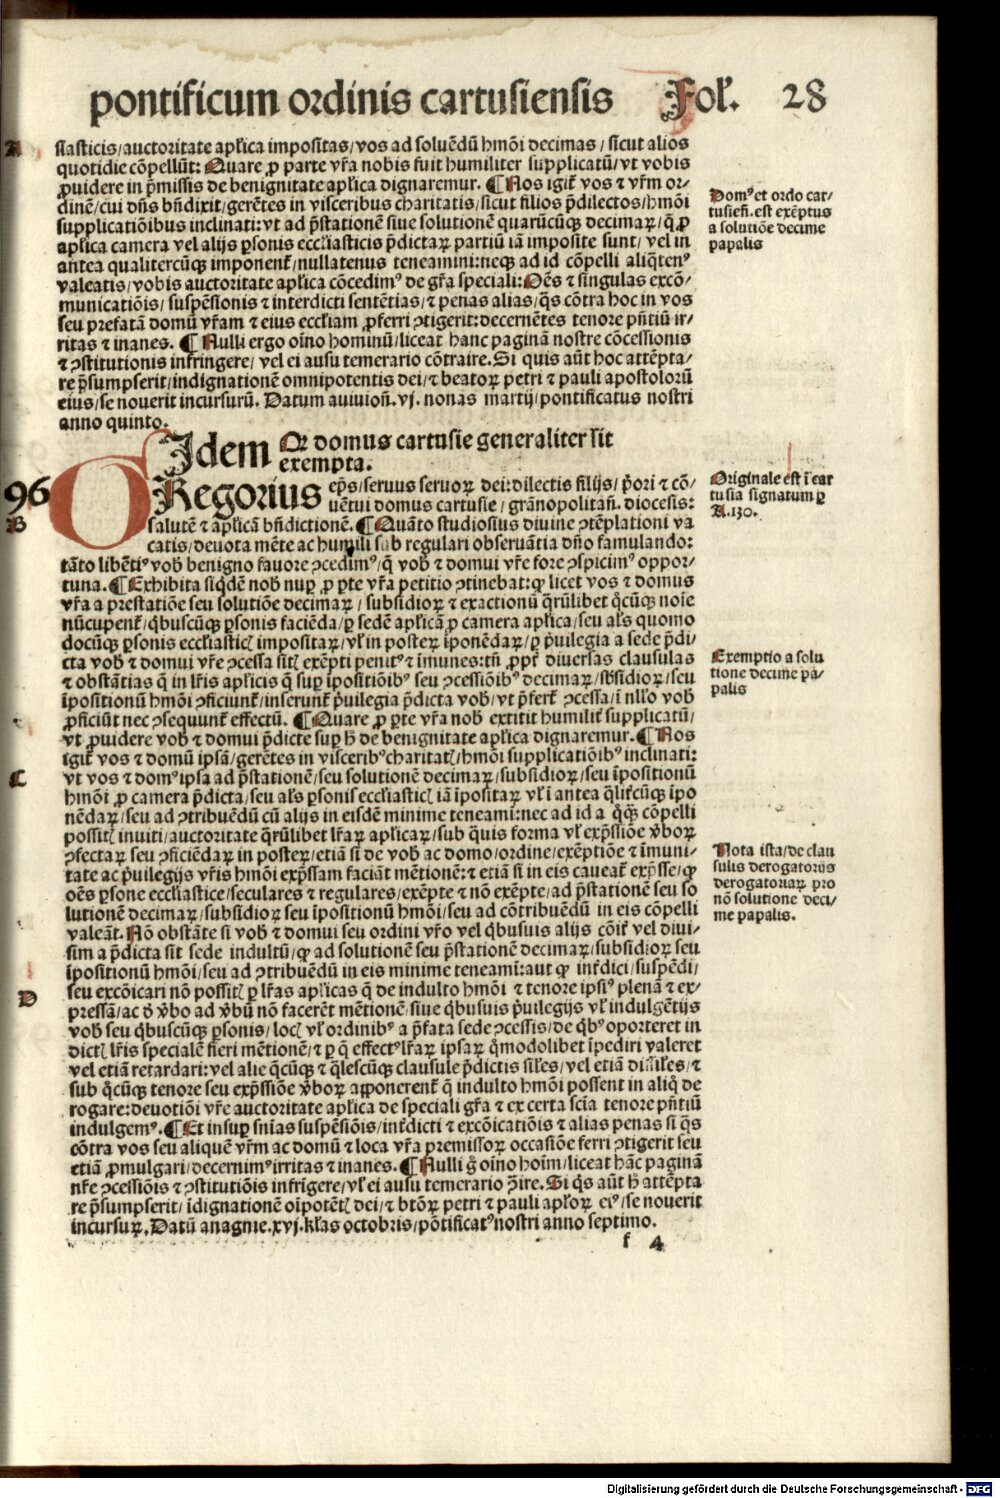 pontificum ordinis cartusiensis Fol'. 28
A
siasticis/auctoritate aplica impositas/vos ad soluēdū hmōi decimas/ sicut alios
quotidie cōpellūt: Quare ꝓ parte vr̄a nobis fuit humiliter supplicatū/vt vobis
ꝓuidere in p̄missis de benignitate aplica dignaremur. ¶ Nos igit̄ vos ⁊ vr̄m or⸗
dinē/cui dn̄s bn̄dixit/gerētes in visceribus charitatis/sicut filios p̄dilectos/hmōi
supplicatiōibus inclinati: vt ad p̄stationē siue solutionē quarūcūqꝫ decimaꝝ/q̄ ꝓ
aplica camera vel alijs ꝑsonis eccliasticis p̄dictaꝝ partiū iā imposite sunt/ vel in
antea qualitercūqꝫ imponent̄/nullatenus teneamini: neqꝫ ad id cōpelli aliq̄tenꝰ
valeatis/vobis auctoritate aplica cōcedimꝰ de gr̄a speciali: Oēs ⁊ singulas excō⸗
municatiōis/ suspēsionis ⁊ interdicti sentētias/⁊ penas alias/q̄s cōtra hoc in vos
seu prefatā domū vr̄am ⁊ eius eccliam ꝓferri ꝯtigerit: decernētes tenore pn̄tiū ir⸗
ritas ⁊ inanes. ¶ Nulli ergo oīno hominū/liceat hanc paginā nostre cōcessionis
⁊ ꝯstitutionis infringere/ vel ei ausu temerario cōtraire. Si quis aūt hoc attēpta⸗
re p̄sumpserit/indignationē omnipotentis dei/⁊ beatoꝝ petri ⁊ pauli apostoloꝝū
eius/se nouerit incursurū. Datum auiuion̄. vj. nonas martij/pontificatus nostri
anno quinto.
Domꝰ et ordo car⸗
tusien̄. est exēptus
a solutiōe decime
papalis
Idem Qꝫ domus cartusie generaliter sit
exempta.
96
B
GRegorius ep̄s/seruus seruoꝝ dei: dilectis filijs/ p̄ori ⁊ cō⸗
uētui domus cartusie/ grānopolitan̄. diocesis:
salutē ⁊ aplicā bn̄dictionē. ¶ Quāto studiosius diuine ꝯtēplationi va
catis/deuota mēte ac humili sub regulari obseruātia dn̄o famulando:
tāto libētiꝰ vob̄ benigno fauore ꝯcedimꝰ/q̄ vob̄ ⁊ domui vr̄e fore ꝯspicimꝰ oppor⸗
tuna. ¶ Exhibita siq̄dē nob̄ nuꝑ ꝓ ꝑte vr̄a petitio ꝯtinebat: ꝙ licet vos ⁊ domus
vr̄a a prestatiōe seu solutiōe decimaꝝ/ subsidioꝝ ⁊ exactionū q̄rūlibet q̄cūqꝫ noīe
nūcupent̄/q̄buscūqꝫ ꝑsonis faciēda/ꝑ sedē aplicā ꝓ camera aplica/seu al's quomo
docūqꝫ ꝑsonis eccliastic̄ impositaꝝ/vl' in posteꝝ īponēdaꝝ/ꝑ p̄uilegia a sede p̄di⸗
cta vob̄ ⁊ domui vr̄e ꝯcessa sit̄ exēpti penitꝰ ⁊ īmunes: tn̄ ꝓpt̄ diuersas clausulas
⁊ obstātias q̄ in lr̄is aplicis q̄ suꝑ īpositiōibꝰ seu ꝯcessiōibꝰ decimaꝝ/sb̄sidioꝝ/seu
īpositionū hmōi ꝯficiunt̄/inserunt̄ p̄uilegia p̄dicta vob̄/vt p̄fert̄ ꝯcessa/ī nll'o vob̄
ꝓficiūt nec ꝯsequunt̄ effectū. ¶ Quare ꝓ ꝑte vr̄a nob̄ extitit humilit̄ supplicatū/
vt ꝓuidere vob̄ ⁊ domui p̄dicte suꝑ h̄ de benignitate aplica dignaremur. ¶ Nos
igit̄ vos ⁊ domū ipsā/gerētes in visceribꝰ charitat̄/hmōi supplicatiōibꝰ inclinati:
C
vt vos ⁊ domꝰ ipsa ad p̄stationē/seu solutionē decimaꝝ/subsidioꝝ/seu īpositionū
hmōi ꝓ camera p̄dicta/seu al's ꝑsonis eccliastic̄ iā īpositaꝝ vl' ī antea q̄lit̄cūqꝫ īpo
nēdaꝝ/seu ad ꝯtribuēdū cū alijs in eisdē minime teneami: nec ad id a q̄qꝫ cōpelli
possit̄ inuiti/auctoritate q̄rūlibet lr̄aꝝ aplicaꝝ/sub q̄uis forma vl' exp̄ssiōe v̄boꝝ
ꝯfectaꝝ seu ꝯficiēdaꝝ in posteꝝ/etiā si de vob̄ ac domo/ordine/exēptiōe ⁊ īmuni⸗
tate ac p̄uilegijs vr̄is hmōi exp̄ssam faciāt mētionē: ⁊ etiā si in eis caueat̄ exp̄sse/ꝙ
oēs ꝑsone eccliastice/seculares ⁊ regulares/exēpte ⁊ nō exēpte/ad p̄stationē seu so
lutionē decimaꝝ/subsidioꝝ seu īpositionū hmōi/seu ad cōtribuēdū in eis cōpelli
valeāt. Nō obstāte si vob̄ ⁊ domui seu ordini vr̄o vel q̄busuis alijs cōit̄ vel diui⸗
sim a p̄dicta sit sede indultū/ꝙ ad solutionē seu p̄stationē decimaꝝ/subsidioꝝ seu
īpositionū hmōi/seu ad ꝯtribuēdū in eis minime teneami: aut ꝙ int̄dici/suspēdi/
D
seu excōicari nō possit̄ ꝑ lr̄as aplicas q̄ de indulto hmōi ⁊ tenore ipsiꝰ plenā ⁊ ex⸗
pressā/ac d̄ v̄bo ad v̄bū nō facerēt mētionē/siue q̄busuis p̄uilegijs vl' indulgētijs
vob̄ seu q̄buscūqꝫ ꝑsonis/loc̄ vl' ordinibꝰ a p̄fata sede ꝯcessis/de q̄bꝰ oporteret in
dict̄ lr̄is specialē fieri mētionē/⁊ ꝑ q̄ effectꝰ lr̄aꝝ ipsaꝝ q̄modolibet īpediri valeret
vel etiā retardari: vel alie q̄cūqꝫ ⁊ q̄lescūqꝫ clausule p̄dictis sil'es/vel etiā dissil'es/⁊
sub q̄cūqꝫ tenore seu exp̄ssiōe v̄boꝝ apponerent̄ q̄ indulto hmōi possent in aliq̄ de
rogare: deuotiōi vr̄e auctoritate aplica de speciali gr̄a ⁊ ex certa scīa tenore pn̄tiū
indulgemꝰ. ¶ Et insuꝑ sn̄ias suspēsiōis/int̄dicti ⁊ excōicatiōis ⁊ alias penas si q̄s
cōtra vos seu aliquē vr̄m ac domū ⁊ loca vr̄a premissoꝝ occasiōe ferri ꝯtigerit seu
etiā ꝓmulgari/decernimꝰ irritas ⁊ inanes. ¶ Nulli g̊ oīno hoīm/liceat hāc paginā
nr̄e ꝯcessiōis ⁊ ꝯstitutiōis infrīgere/vl' ei ausu temerario ꝯ̄ire. Si q̄s aūt h̄ attēpta
re p̄sumpserit/ īdignationē oīpotēt̄ dei/⁊ btōꝝ petri ⁊ pauli aplōꝝ eiꝰ/se nouerit
incursuꝝ. Datū anagnie. xvj. kl'as octobris/pōtificatꝰ nostri anno septimo.
Originale est ī car
tusia signatum ꝑ
A. 130.
Exemptio a solu
tione decime pa⸗
palis
Nota ista/de clau
sulis derogatorijs
derogatoriaꝝ pro
nō solutione deci⸗
me papalis.
f 4
Digitalisierung gefördert durch die Deutsche Forschungsgemeinschaft - DFG